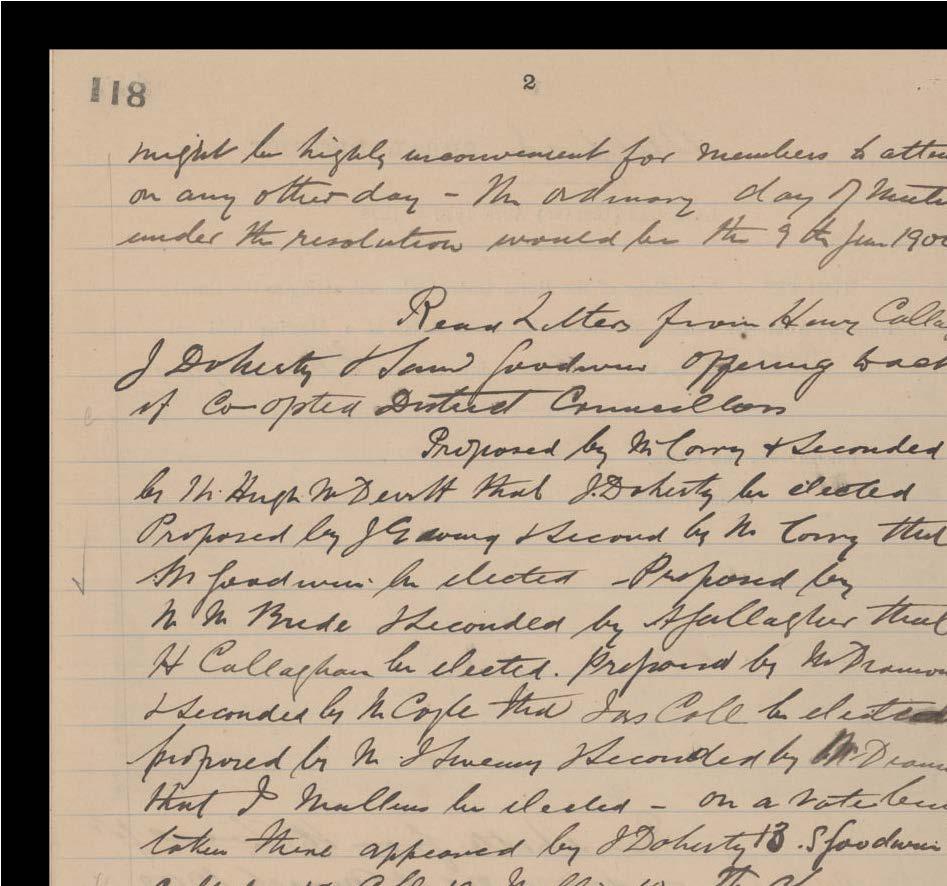 118
2
might be highly inconvenient for members to atten
on any other day - The ordinary day of Meeti
under the resolution would be the 9th June 190
Read Letters from Henry Calla
J Doherty & Saml Goodwin offering to act
if Co-opted District Councillors
Proposed by Mr Corry & Seconded
by Mr. Hugh McDevitt that J. Doherty be elected
Proposed by J & Second by Mr Corry that
Mr Goodwin be elected - Proposed by
Mr McBride & Seconded by A Gallagher that
H Callaghan be elected. Proposed by Mr
& Seconded by Mr Coyle that Jas Coll be elected
proposed by Mr J Sweeny & Seconded by Mr
that J Mullins be elected - on a vote bein
taken there appeared by J Doherty 13. S Goodwin